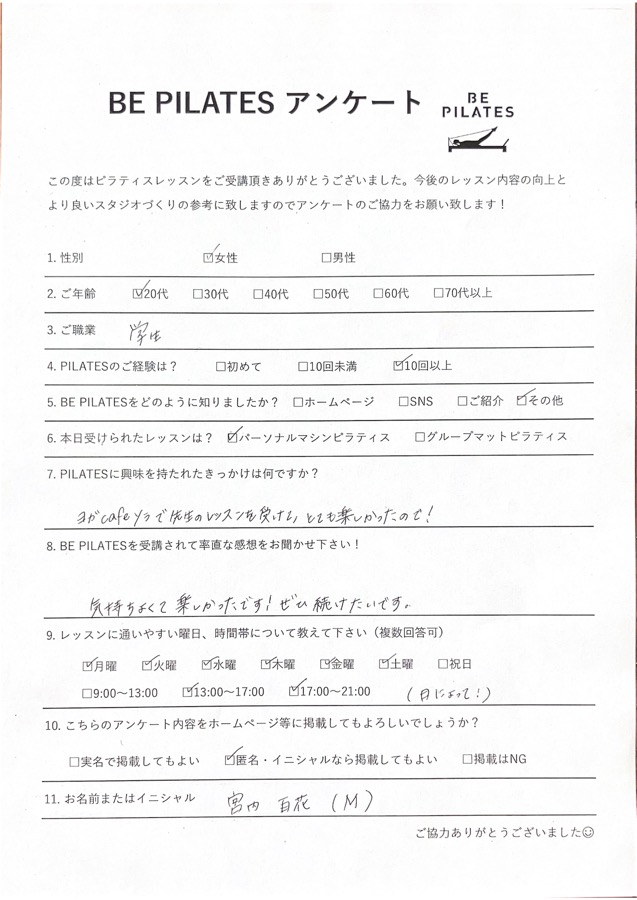 BE PILATES アンケート
BE
PILATES
この度はピラティスレッスンをご受講頂きありがとうございました。今後のレッスン内容の向上と
より良いスタジオづくりの参考に致しますのでアンケートのご協力をお願い致します！
1. 性別 ☑女性 □男性
2. ご年齢 ☑20代 □30代 □40代 □50代 □60代 □70代以上
3. ご職業 学生
4. PILATESのご経験は？ □初めて □10回未満 ☑10回以上
5. BE PILATESをどのように知りましたか？ □ホームページ □SNS □ご紹介 ☑その他
6. 本日受けられたレッスンは？ ☑パーソナルマシンピラティス □グループマットピラティス
7. PILATESに興味を持たれたきっかけは何ですか？
ヨガcafeソラで先生のレッスンを受けて、とても楽しかったので！
8. BE PILATESを受講されて率直な感想をお聞かせ下さい！
気持ちよくて楽しかったです！ぜひ続けたいです。
9. レッスンに通いやすい曜日、時間帯について教えて下さい（複数回答可）
☑月曜 ☑火曜 ☑水曜 ☑木曜 ☑金曜 ☑土曜 □祝日
□9:00〜13:00 ☑13:00〜17:00 ☑17:00〜21:00 （日によって！）
10. こちらのアンケート内容をホームページ等に掲載してもよろしいでしょうか？
□実名で掲載してもよい ☑匿名・イニシャルなら掲載してもよい □掲載はNG
11. お名前またはイニシャル 宮内 百花 (M)
ご協力ありがとうございました☺